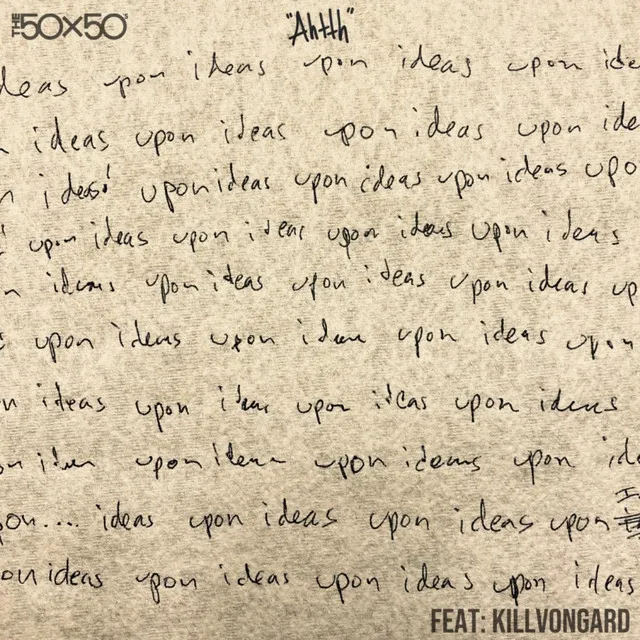 THE 50x50
"Ahtth"
deas upon ideas upon ideas upon ide
n ideas upon ideas upon ideas upon ide
n ideas! upon ideas upon ideas upon ideas upo
upon ideas upon ideas upon ideas upon ideas
n ideas upon ideas upon ideas upon ideas up
s upon ideas upon ideas upon ideas upon
n ideas upon ideas upon ideas upon ideas
on ideas upon ideas upon ideas upon ide
pon... ideas upon ideas upon ideas upon
on ideas upon ideas upon ideas upon ideas
FEAT: KILLVONGARD